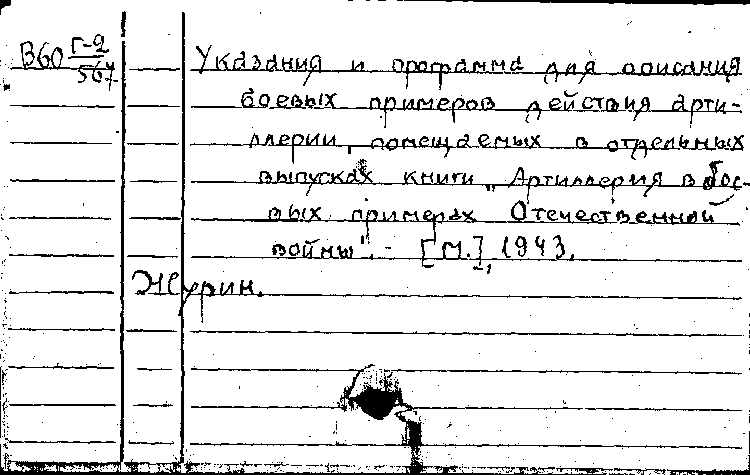 В60 Г-2
567
Указания и программа для описания
боевых примеров действия арти-
ллерии, помещаемых в отдельных
выпусках книги „Артиллерия в бое-
вых примерах Отечественной
войны". - [М.], 1943.
Журин.